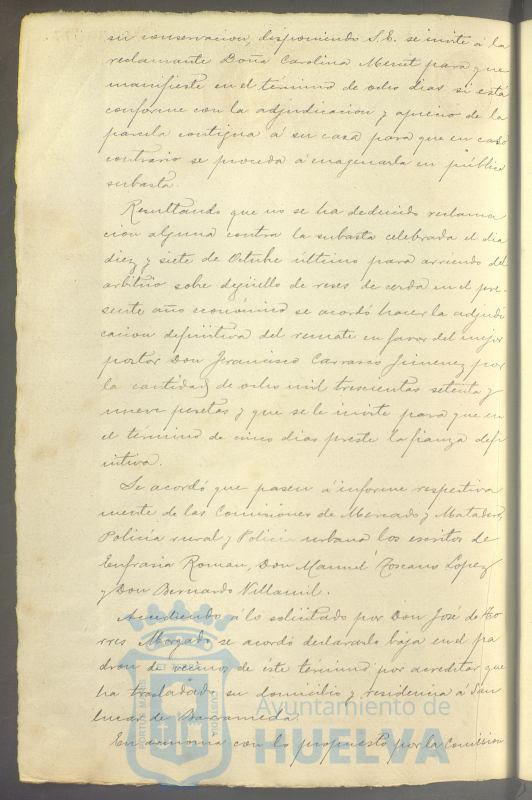 su conservacion, disponiendo S.E. se invite á la
reclamante Doña Carolina Merset para que
manifieste en el término de ocho dias si está
conforme con la adjudicacion y aprecio de la
parcela contigua á su casa para que en caso
contrario se proceda á enagenarla en pública
subasta.
Resultando que no se ha deducido reclama
cion alguna contra la subasta celebrada el dia
diez y siete de Octubre último para arriendo del
arbitrio sobre degüello de reses de cerda en el pre-
sente año económico se acordó hacer la adjudi
cacion definitiva del remate en favor del mejor
postor Don Francisco Carrasco Jimenez por
la cantidad de ocho mil trescientas setenta y
nueve pesetas y que se le invite para que en
el término de cinco dias preste la fianza defi
nitiva.
Se acordó que pasen á informe respectiva
mente de las Comisiones de Mercado y Matadero,
Policía rural y Policia urbana los escritos de
Eufrasia Roman, Don Manuel Toscano Lopez
y Don Bernardo Villamil.
Accediendo á lo solicitado por Don José de To
rres Morgado se acordó declararlo baja en el pa
dron de vecinos de este término por acreditar que
ha trasladado su domicilio y residencia á San
lucar de Barrameda.
En armonia con lo propuesto por la Comision
PORTUS MARIS
CUSTODIA
Ayuntamiento de
HUELVA